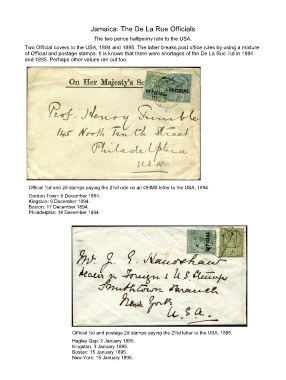 Jamaica: The De La Rue Officials
The two pence halfpenny rate to the USA.
Two Official covers to the USA, 1894 and 1895. The latter breaks post office rules by using a mixture
of Official and postage stamps. It is known that there were shortages of the De La Rue ½d in 1894
and 1895. Perhaps other values ran out too.
On Her Majesty's Se
OFFICIAL OFFICIAL
Prof. Henry Trimble
145 North Tenth Street
Philadelphia
USA
Official ½d and 2d stamps paying the 2½d rate on an OHMS letter to the USA, 1894.
Gordon Town: 6 December 1894.
Kingston: 6 December 1894.
Boston: 17 December 1894.
Philadelphia: 18 December 1894.
OFFICIAL
Mr. J. E. Handshaw
Dealer in Foreign & U.S. Stamps
Smithtown Branch
New York
U.S.A.
Official ½d and postage 2d stamps paying the 2½d letter to the USA, 1895.
Hagley Gap: 2 January 1895.
Kingston: 3 January 1895.
Boston: 15 January 1895.
New York: 15 January 1895.